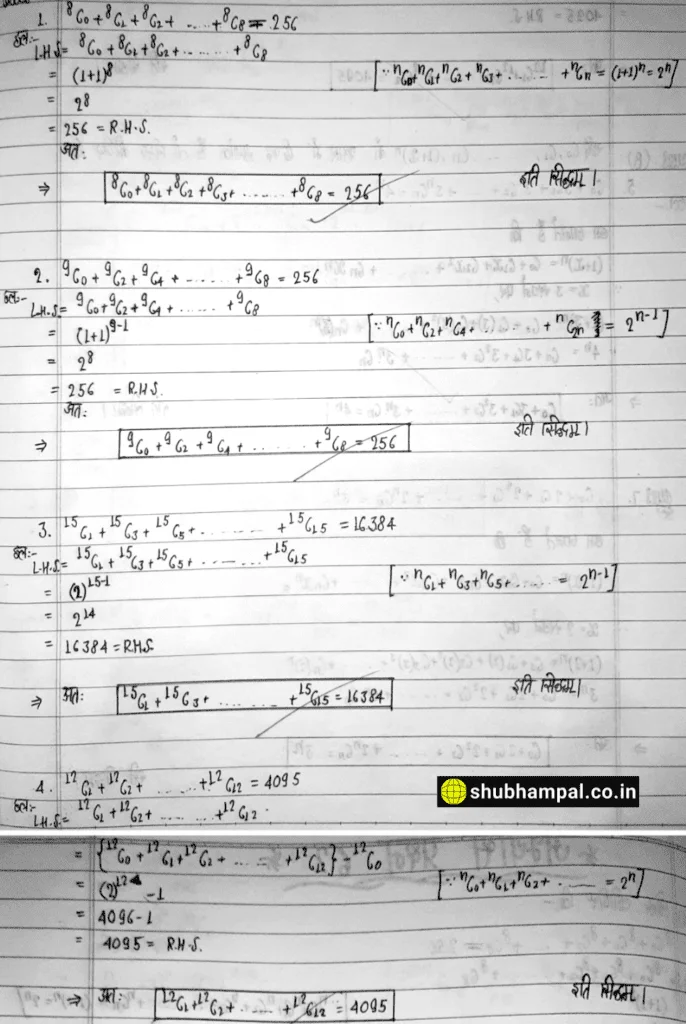 1. ⁸C₀ + ⁸C₁ + ⁸C₂ + ...... + ⁸C₈ = 256
हल:-
L.H.S. = ⁸C₀ + ⁸C₁ + ⁸C₂ + ........ + ⁸C₈
= (1+1)⁸ [∵ ⁿC₀ + ⁿC₁ + ⁿC₂ + ⁿC₃ + ........ + ⁿCₙ = (1+1)ⁿ = 2ⁿ]
= 2⁸
= 256 = R.H.S.
अत:
⇒ ⁸C₀ + ⁸C₁ + ⁸C₂ + ⁸C₃ + ........ + ⁸C₈ = 256 इति सिद्धम।
2. ⁹C₀ + ⁹C₂ + ⁹C₄ + ........ + ⁹C₈ = 256
हल:-
L.H.S. = ⁹C₀ + ⁹C₂ + ⁹C₄ + ........ + ⁹C₈
= (1+1)⁹⁻¹ [∵ ⁿC₀ + ⁿC₂ + ⁿC₄ + ........ + ⁿC₂ₙ = 2ⁿ⁻¹]
= 2⁸
= 256 = R.H.S.
अत:
⇒ ⁹C₀ + ⁹C₂ + ⁹C₄ + ........ + ⁹C₈ = 256 इति सिद्धम।
3. ¹⁵C₁ + ¹⁵C₃ + ¹⁵C₅ + ......... + ¹⁵C₁₅ = 16384
हल:-
L.H.S. = ¹⁵C₁ + ¹⁵C₃ + ¹⁵C₅ + ........ + ¹⁵C₁₅
= (2)¹⁵⁻¹ [∵ ⁿC₁ + ⁿC₃ + ⁿC₅ + ....... = 2ⁿ⁻¹]
= 2¹⁴
= 16384 = R.H.S.
⇒ अत: ¹⁵C₁ + ¹⁵C₃ + ......... + ¹⁵C₁₅ = 16384 इति सिद्धम।
4. ¹²C₁ + ¹²C₂ + ........ + ¹²C₁₂ = 4095
shubhampal.co.in
हल:-
L.H.S. = ¹²C₁ + ¹²C₂ + ........ + ¹²C₁₂
= {¹²C₀ + ¹²C₁ + ¹²C₂ + ........ + ¹²C₁₂} - ¹²C₀
= (2)¹² - 1 [∵ ⁿC₀ + ⁿC₁ + ⁿC₂ + ....... = 2ⁿ]
= 4096 - 1
= 4095 = R.H.S.
⇒ अत: ¹²C₁ + ¹²C₂ + ....... + ¹²C₁₂ = 4095 इति सिद्धम।